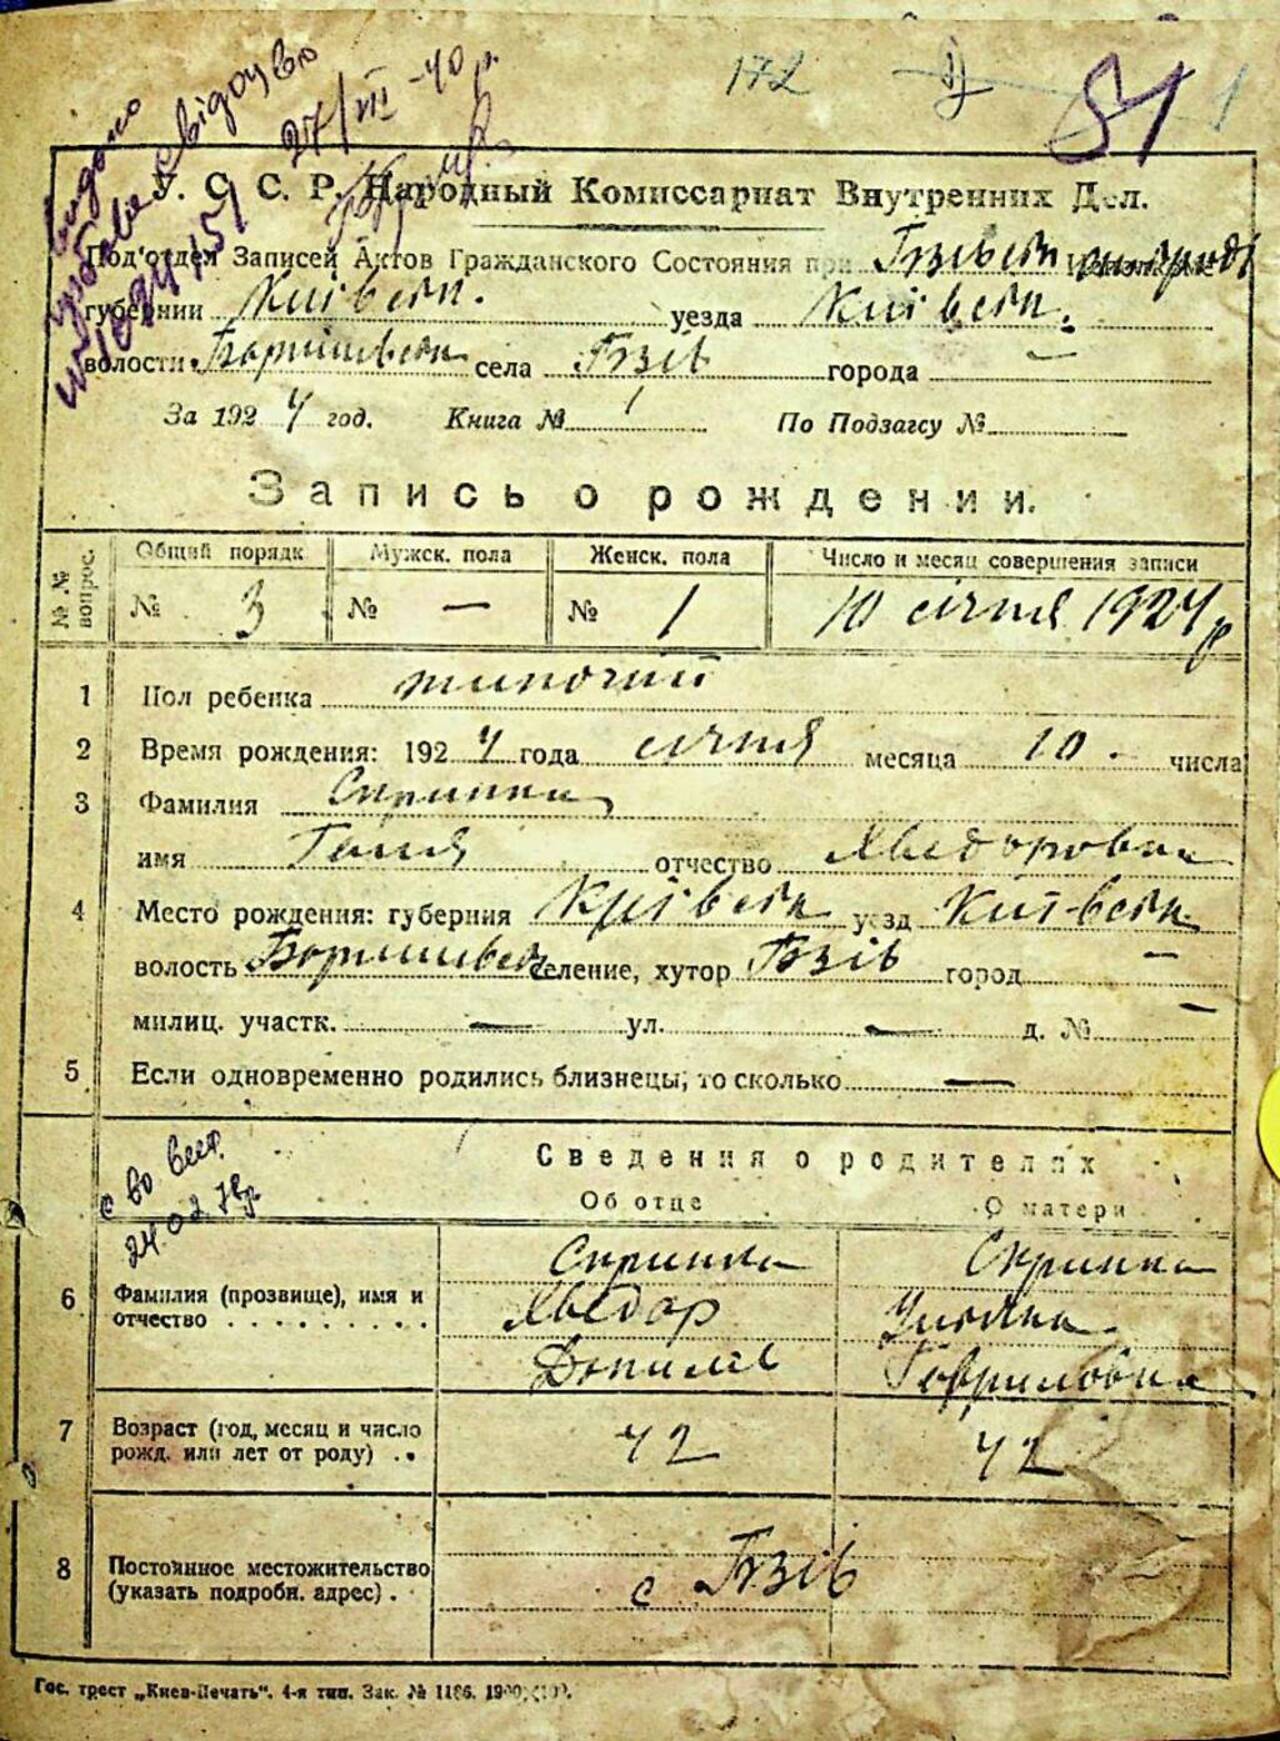 172
81
1
видано
свідоцтво
27/VII -40 р.
У. С. С. Р. Народный Комиссариат Внутренних Дел.
Под'отдел Записей Актов Гражданского Состояния при Бзівськ.
губернии Київськ. уезда Київськ.
волости Боришівськ села Бзів города —
За 1924 год. Книга № 1 По Подзагсу №
Запись о рождении.
№ № вопрос. Общий порядк Мужск. пола Женск. пола Число и месяц совершения записи
№ 3 № — № 1 10 січня 1924 р
1 Пол ребенка жиночий
2 Время рождения: 1924 года січня месяца 10 числа
3 Фамилия Скрипка
имя Ганя отчество Хведоровна
4 Место рождения: губерния Київськ уезд Київськ.
волость Боришівськ селение, хутор Бзів город —
милиц. участк. — ул. — д. № —
5 Если одновременно родились близнецы, то сколько —
24.02.
Сведения о родителях
Об отце О матери
Скрипка Скрипка
6 Фамилия (прозвище), имя и Хведор Уляна
отчество . . . . . . . . . Данилів Гавриловна
7 Возраст (год, месяц и число 42 42
рожд. или лет от роду) . .
8 Постоянное местожительство с Бзів
(указать подробн. адрес) .
Гос. трест „Киев-Печать“. 4-я тип. Зак. № 1186.